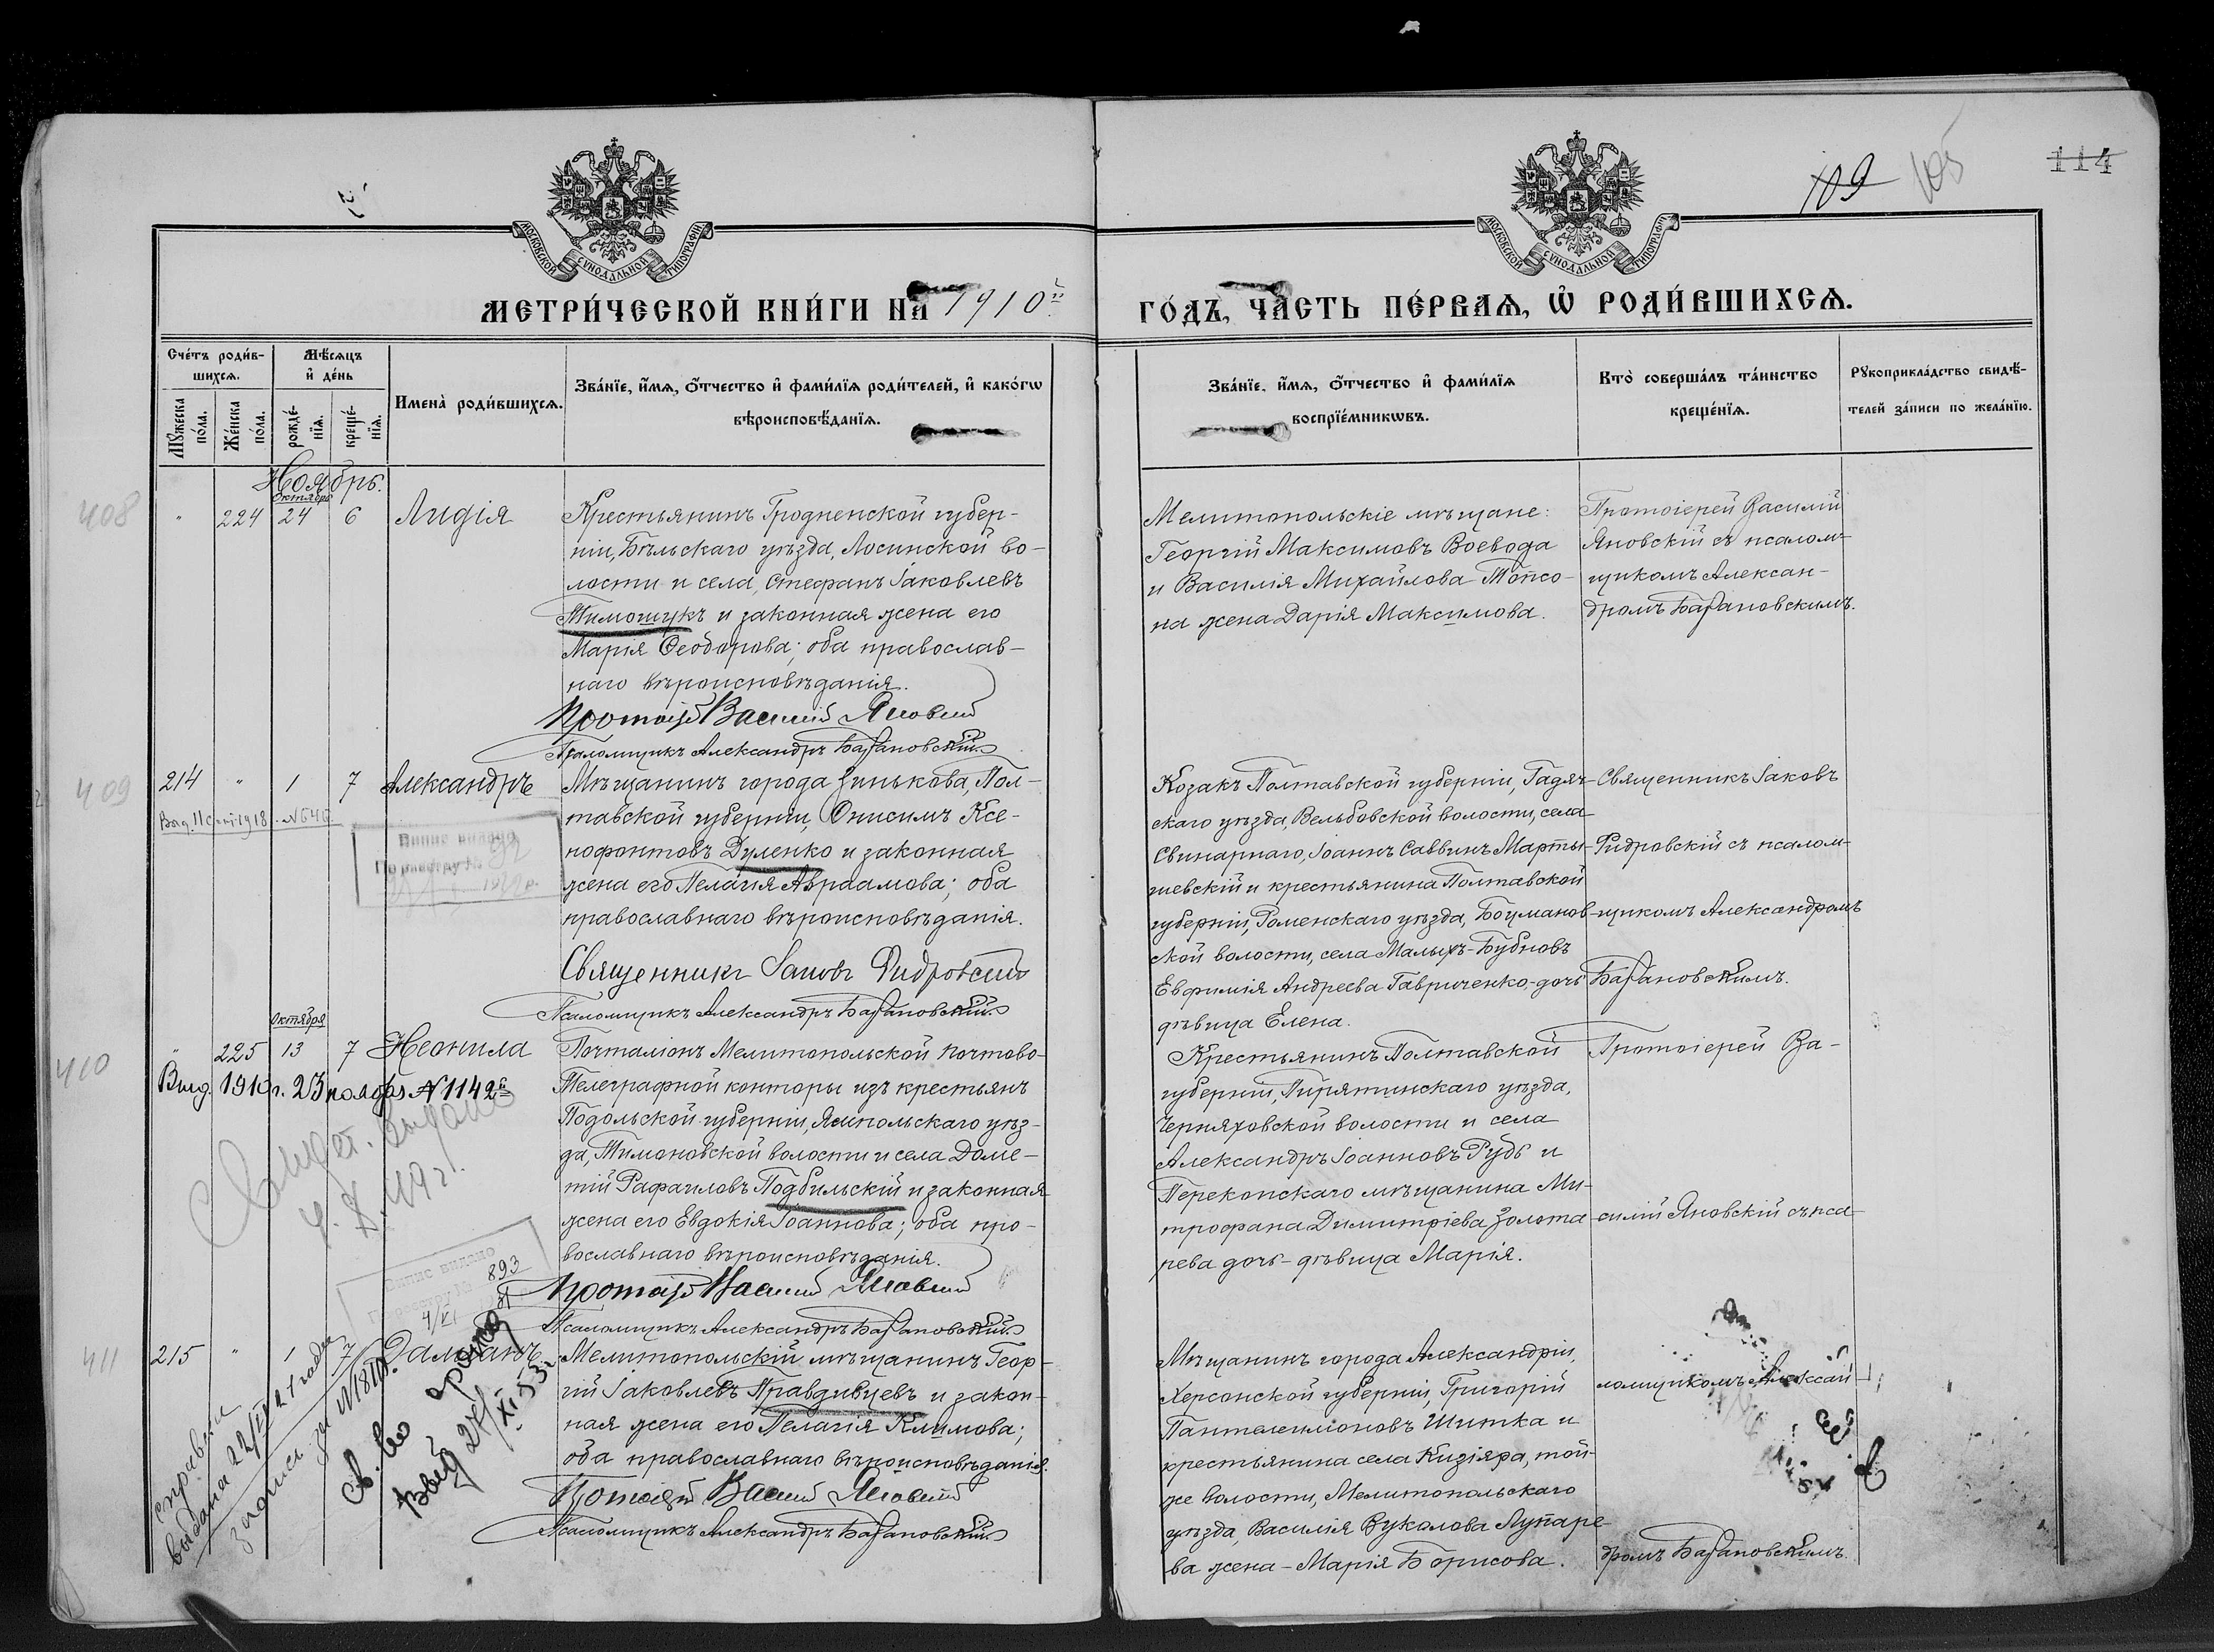 109
105
114
МОСКОВСКОЙ СѴНОДАЛЬНОЙ ТИПОГРАФІИ
МОСКОВСКОЙ СѴНОДАЛЬНОЙ ТИПОГРАФІИ
МЕТРИ́ЧЕСКОЙ КНИ́ГИ НА 1910й
ГО́ДЪ, ЧА́СТЬ ПЕ́РВАЯ, Ѡ РОДИ́ВШИХСЯ.
Сче́тъ роди́в-
шихся.
Мѣ́сяцъ
и҆ де́нь
Мꙋ́жеска
по́ла.
Же́нска
по́ла.
рожде́-
нїя.
креще́-
нїя.
Имена̀ роди́вшихся.
Зва́нїе, и҆́мя, ѻ҆́тчество и҆ фами́лїя роди́телей, и҆ како́гѡ
вѣроисповѣ́данїя.
Зва́нїе, и҆́мя, ѻ҆́тчество и҆ фами́лїя
воспрїе́мникѡвъ.
Кто̀ соверша́лъ та́инство
креще́нїя.
Рꙋкоприкла́дство свидѣ́-
телей за́писи по жела́нїю.
Ноябрь.
Октября
408
" 224 24 6 Лидія
Крестьянинъ Гродненской губер-
ніи, Бѣльскаго уѣзда, Лосинской во-
лости и села, Стефанъ Іаковлевъ
Тимошукъ и законная жена его
Марія Ѳеодорова; оба православ-
наго вѣроисповѣданія.
Протоіерей Василій Яновскій
Псаломщикъ Александръ Барановскій
Мелитопольскіе мѣщане:
Георгій Максимовъ Воевода
и Василія Михайлова Топсо-
на жена Дарія Максимова.
Протоіерей Василій
Яновскій съ псалом-
щикомъ Алексан-
дромъ Барановскимъ.
409
214 " 1 7 Александръ
Мѣщанинъ города Зинькова, Пол-
тавской губерніи, Онисимъ Ксе-
нофонтовъ Дуленко и законная
жена его Пелагія Авраамова; оба
православнаго вѣроисповѣданія.
Священникъ Іаковъ
Псаломщикъ Александръ Барановскій
Випис видано
По реестру №
Козакъ Полтавской губерніи, Гадяч-
скаго уѣзда, Вельбовской волости, села
Свинарнаго, Іоаннъ Саввинъ Марты-
шевскій и крестьянина Полтавской
губерніи, Роменскаго уѣзда, Боцманов-
ской волости, села Малыхъ-Бубновъ
Евфимія Андреева Гавриченко,-дочь
дѣвица Елена.
Священникъ Іаковъ
съ псалом-
щикомъ Александромъ
Барановскимъ.
Октября
410
" 225 13 7 Неонила
Выд. 1910 г. 23 ноября № 1142
Почталіонъ Мелитопольской почтово-
Телеграфной конторы изъ крестьянъ
Подольской губерніи, Ямпольскаго уѣз-
да, Тимоновской волости и села Доме-
тій Рафаиловъ Подбильскій и законная
жена его Евдокія Іоаннова; оба про-
вославнаго вѣроисповѣданія.
Протоіерей Василій Яновскій
Псаломщикъ Александръ Барановскій
893
Крестьянинъ Полтавской
губерніи, Пирятинскаго уѣзда,
Черняховской волости и села
Александръ Іоанновъ Рудь и
Перекопскаго мѣщанина Ми-
трофана Димитріева Золота-
рева дочь-дѣвица Марія.
Протоіерей Ва-
силій Яновскій съ пса-
411
215 " 1 7 Даміанъ
Мелитопольскій мѣщанинъ Геор-
гій Іаковлевъ Правдивцевъ и закон-
ная жена его Пелагія Климова;
оба православнаго вѣроисповѣданія.
Протоіерей Василій Яновскій
Псаломщикъ Александръ Барановскій
Мѣщанинъ города Александріи,
Херсонской губерніи, Григорій
Пантелеимоновъ Шитка и
крестьянина села Кизіяра, той-
же волости, Мелитопольскаго
уѣзда, Василія Вуколова Лупаре-
ва жена-Марія Борисова.
ломщикомъ
дромъ Барановскимъ.